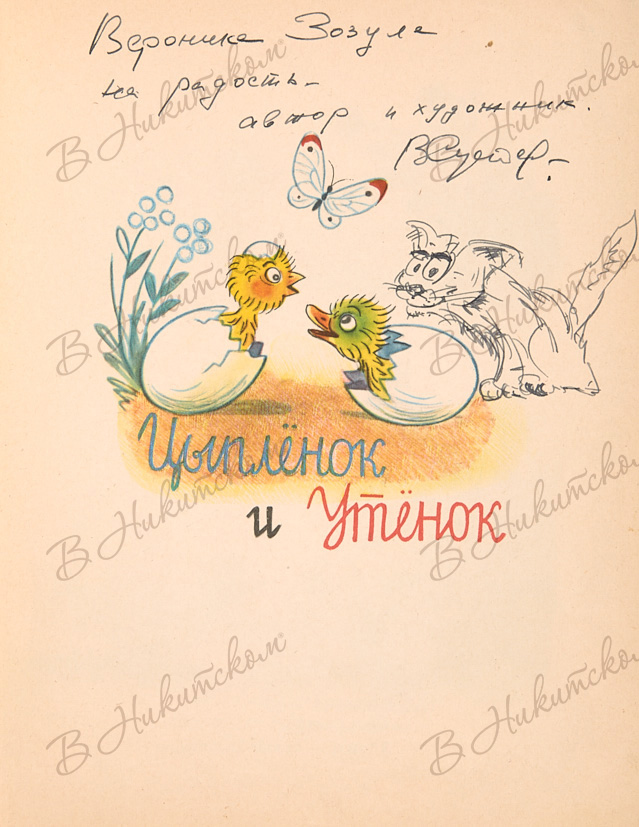 Вероника Зозуля
на радость –
автор и художник.
ВСутеев. –
Цыплёнок
и Утёнок
В Никитском
В Никитском
В Никитском
В Никитском
В Никитском
В Никитском
В Никитском
В Никитском